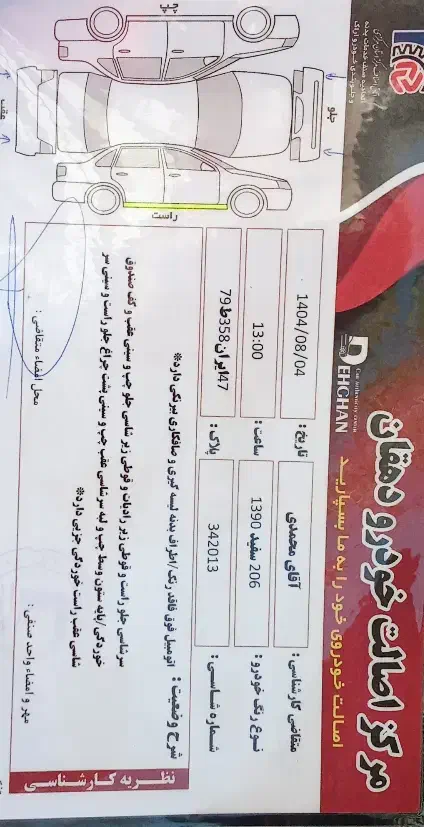 مرکز اصالت خودرو دهقان
اصالت خودروی خود را به ما بسپارید
DEHGHAN
Car authenticity center
جلو
عقب
چپ
راست
متقاضی کارشناسی : آقای محمدی
تاریخ : 1404/08/04
نوع رنگ خودرو : 206 سفید 1390
ساعت : 13:00
شماره شاسی : 342013
پلاک : 47ایران358ط79
نظریه کارشناسی
شرح وضعیت : اتومبیل فوق فاقد رنگ/اطراف بدنه لیسه گیری و صافکاری بیرنگی دارد※
سرشاسی جلو راست و قوطی زیر رادیات و قوطی زیر شاسی جلو چپ و سینی عقب و کف صندوق
خوردگی/پایه ستون وسط چپ و لبه سرشاسی عقب چپ و سینی پشت چراغ جلو راست و سینی سر
شاسی عقب راست خوردگی جزیی دارد※
مهر و امضاء واحد صنفی :
محل امضاء متقاضی :